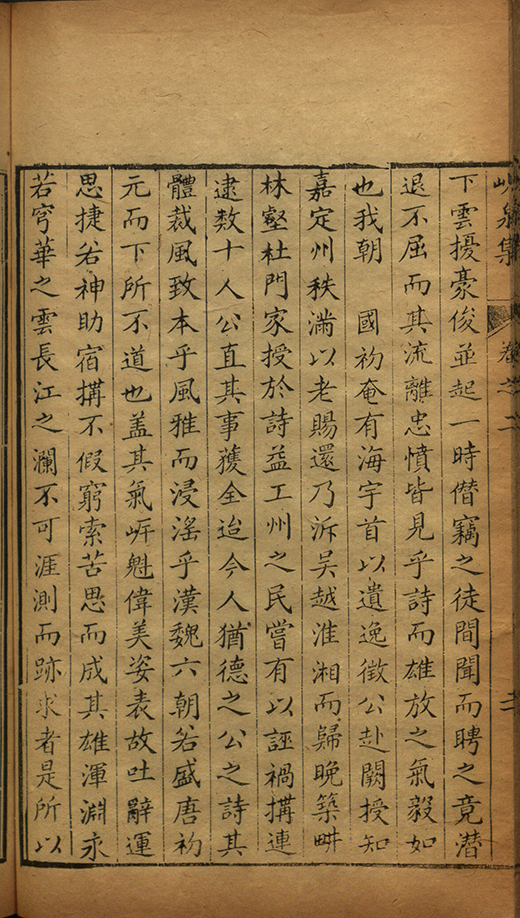 峴泉集 卷之二 二
下雲擾豪俊並起一時僭竊之徒間聞而聘之竟潛
退不屈而其流離忠憤皆見乎詩而雄放之氣毅如
也我朝 國初奄有海宇首以遺逸徵公赴闕授知
嘉定州秩滿以老賜還乃泝吳越淮湘而歸晚築畊
林壑杜門家授於詩益工州之民嘗有以誣禍搆連
逮数十人公直其事獲全迨今人猶德之公之詩其
體裁風致本乎風雅而浸滛乎漢魏六朝若盛唐初
元而下所不道也盖其氣岸魁偉美姿表故吐辭運
思捷若神助宿搆不假窮索苦思而成其雄渾淵永
若穹華之雲長江之瀾不可涯測而跡求者是所以